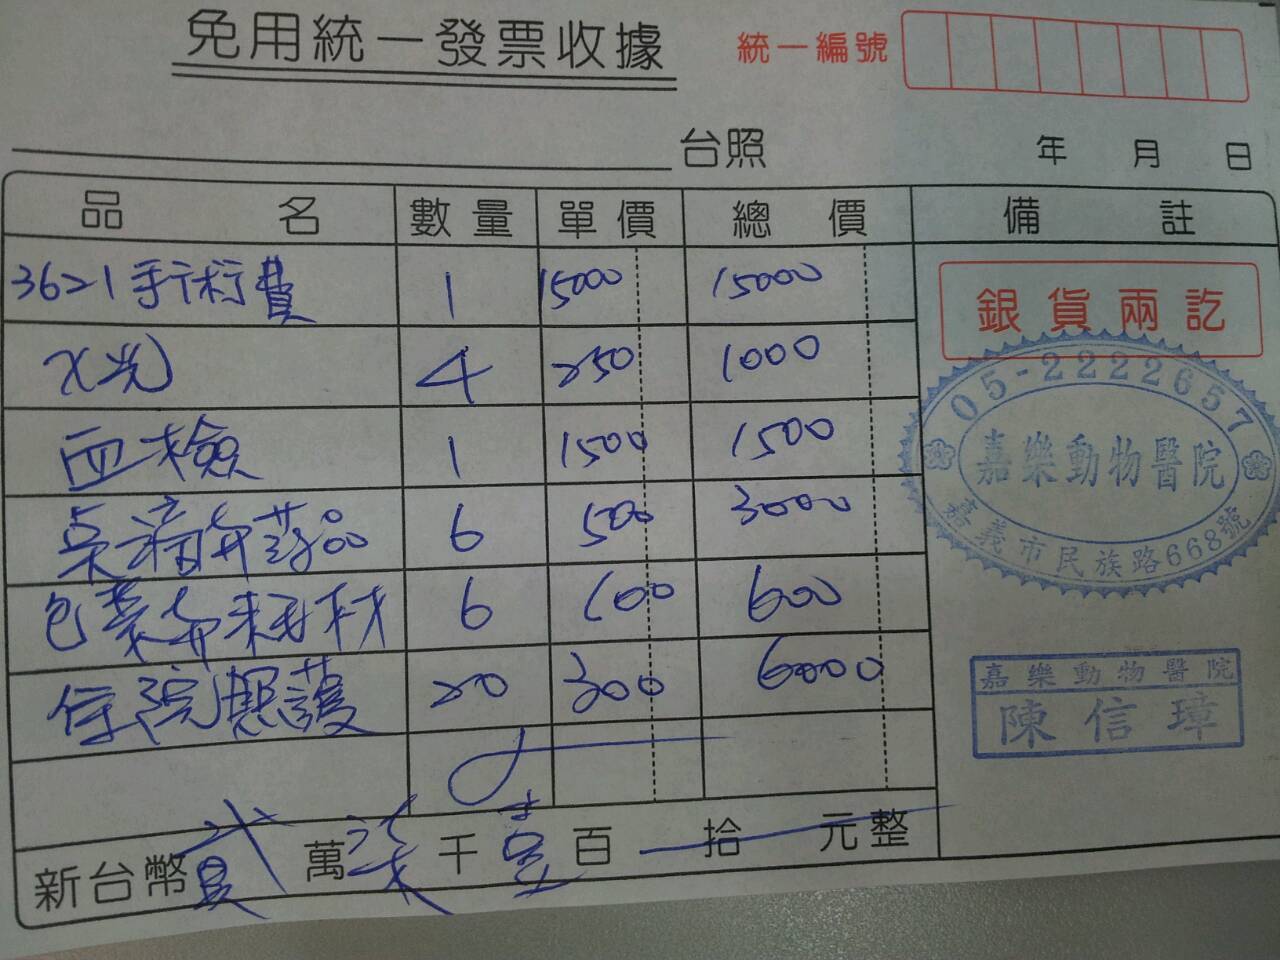 免用統一發票收據
統一編號
台照
年 月 日
品名 數量 單價 總價 備註
3621手術費 1 15000 15000
銀貨兩訖
X光 4 250 1000
血檢 1 1500 1500
點滴與藥品 6 500 3000
包紮與耗材 6 100 600
住院照護 20 300 6000
05-2222657
嘉樂動物醫院
嘉義市民族路668號
嘉樂動物醫院
陳信璋
新台幣貳萬柒千壹百拾元整